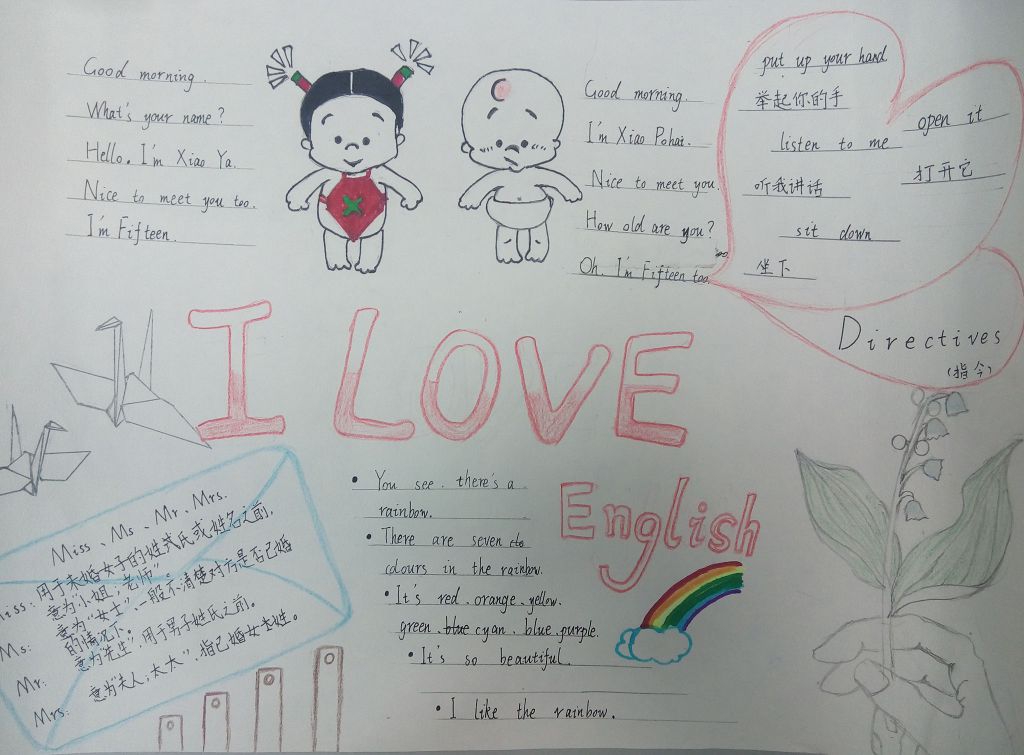 Good morning.
What's your name?
Hello. I'm Xiao Ya.
Nice to meet you too.
I'm Fifteen.
Good morning.
I'm Xiao Pohai.
Nice to meet you.
How old are you?
Oh. I'm Fifteen too.
put up your hand
举起你的手
listen to me
听我讲话
sit down
坐下
open it
打开它
Directives
(指令)
I LOVE
English
Miss、Ms、Mr、Mrs.
Miss: 用于未婚女子的姓或姓名之前,
意为“小姐;老师”
Ms: 意为“女士”,一般不清楚对方是否已婚
的情况下
Mr: 意为“先生”,用于男子姓氏之前。
Mrs: 意为“夫人;太太”,指已婚女士姓。
• You see. there's a
rainbow.
• There are seven
colours in the rainbow.
• It's red、orange、yellow、
green、blue cyan、blue、purple.
• It's so beautiful.
• I like the rainbow.